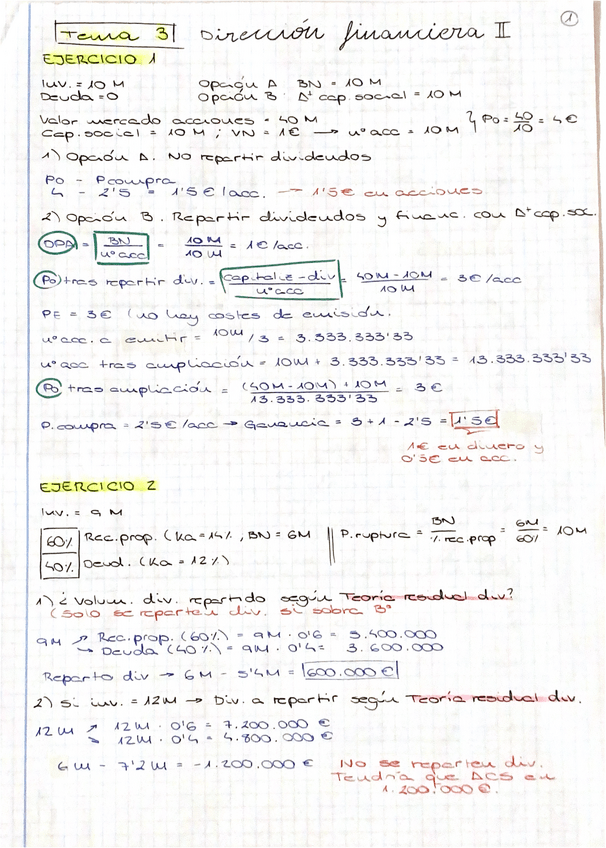 1
Tema 3 Dirección financiera II
EJERCICIO 1
Inv. = 10 M Opción A BN = 10 M
Deuda = 0 Opción B Δ⁺ cap. social = 10 M
Valor mercado acciones = 40 M
Cap. social = 10 M ; VN = 1€ → nº acc = 10 M } P0 = 40/10 = 4€
1) Opción A. No repartir dividendos
P0 - Pcompra
4 - 2'5 = 1'5€/acc. → 1'5€ en acciones.
2) Opción B. Repartir dividendos y financ. con Δ⁺ cap. soc.
DPA = BN / nº acc = 10 M / 10 M = 1€/acc.
P0 tras repartir div. = capitaliz - div / nº acc = 40M - 10M / 10 M = 3€/acc
PE = 3€ (no hay costes de emisión.
nº acc. a emitir = 10M / 3 = 3.333.333'33
nº acc tras ampliación = 10M + 3.333.333'33 = 13.333.333'33
P0 tras ampliación = (40M - 10M) + 10M / 13.333.333'33 = 3€
P. compra = 2'5€/acc → Ganancia = 3 + 1 - 2'5 = 1'5€
1€ en dinero y
0'5€ en acc.
EJERCICIO 2
Inv. = 9 M
60% Rec. prop. (Ka = 14%, BN = 6M || P. ruptura = BN / % rec. prop = 6M / 60% = 10M
40% Deud. (Ka = 12%)
1) ¿Volum. div. repartido según Teoría residual div?
(Solo se reparten div. si sobra Bº
9M ↗ Rec. prop. (60%) = 9M · 0'6 = 5.400.000
↘ Deuda (40%) = 9M · 0'4 = 3.600.000
Reparto div → 6M - 5'4M = 600.000€
2) Si inv. = 12M → Div. a repartir según Teoría residual div.
12M ↗ 12M · 0'6 = 7.200.000 €
↘ 12M · 0'4 = 4.800.000 €
6M - 7'2M = -1.200.000 € No se reparten div.
Tendría que ΔCS en
1.200.000 €.